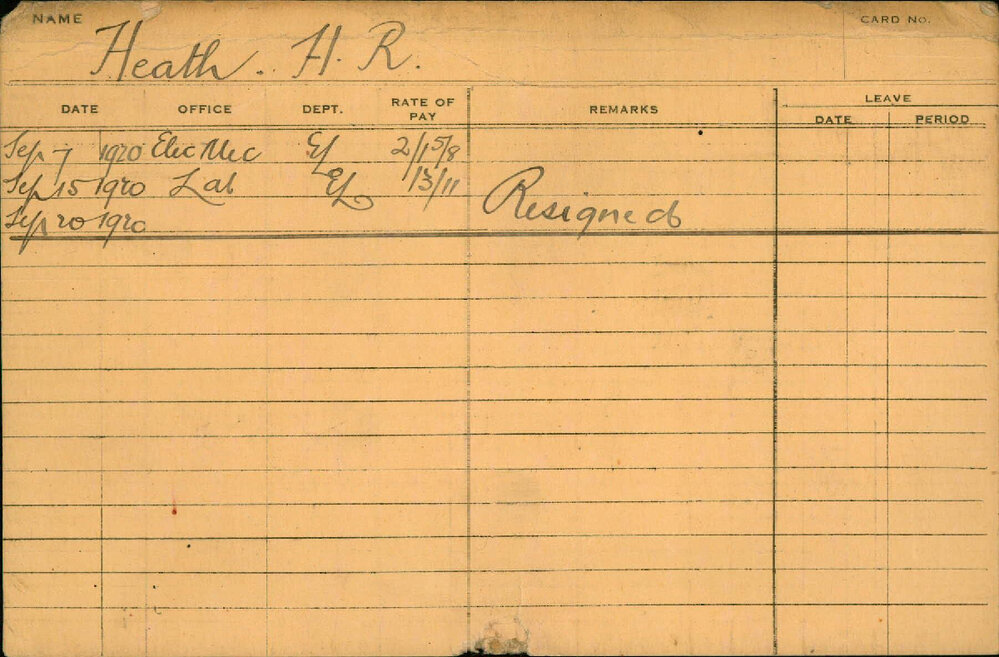 NAME
CARD NO.
Heath. H. R.
DATE OFFICE DEPT. RATE OF PAY REMARKS LEAVE
DATE PERIOD
Sep 7 1920 Elec Mec EL 2/15/8
Sep 15 1920 Lab EL 13/11
Sep 20 1920 Resigned